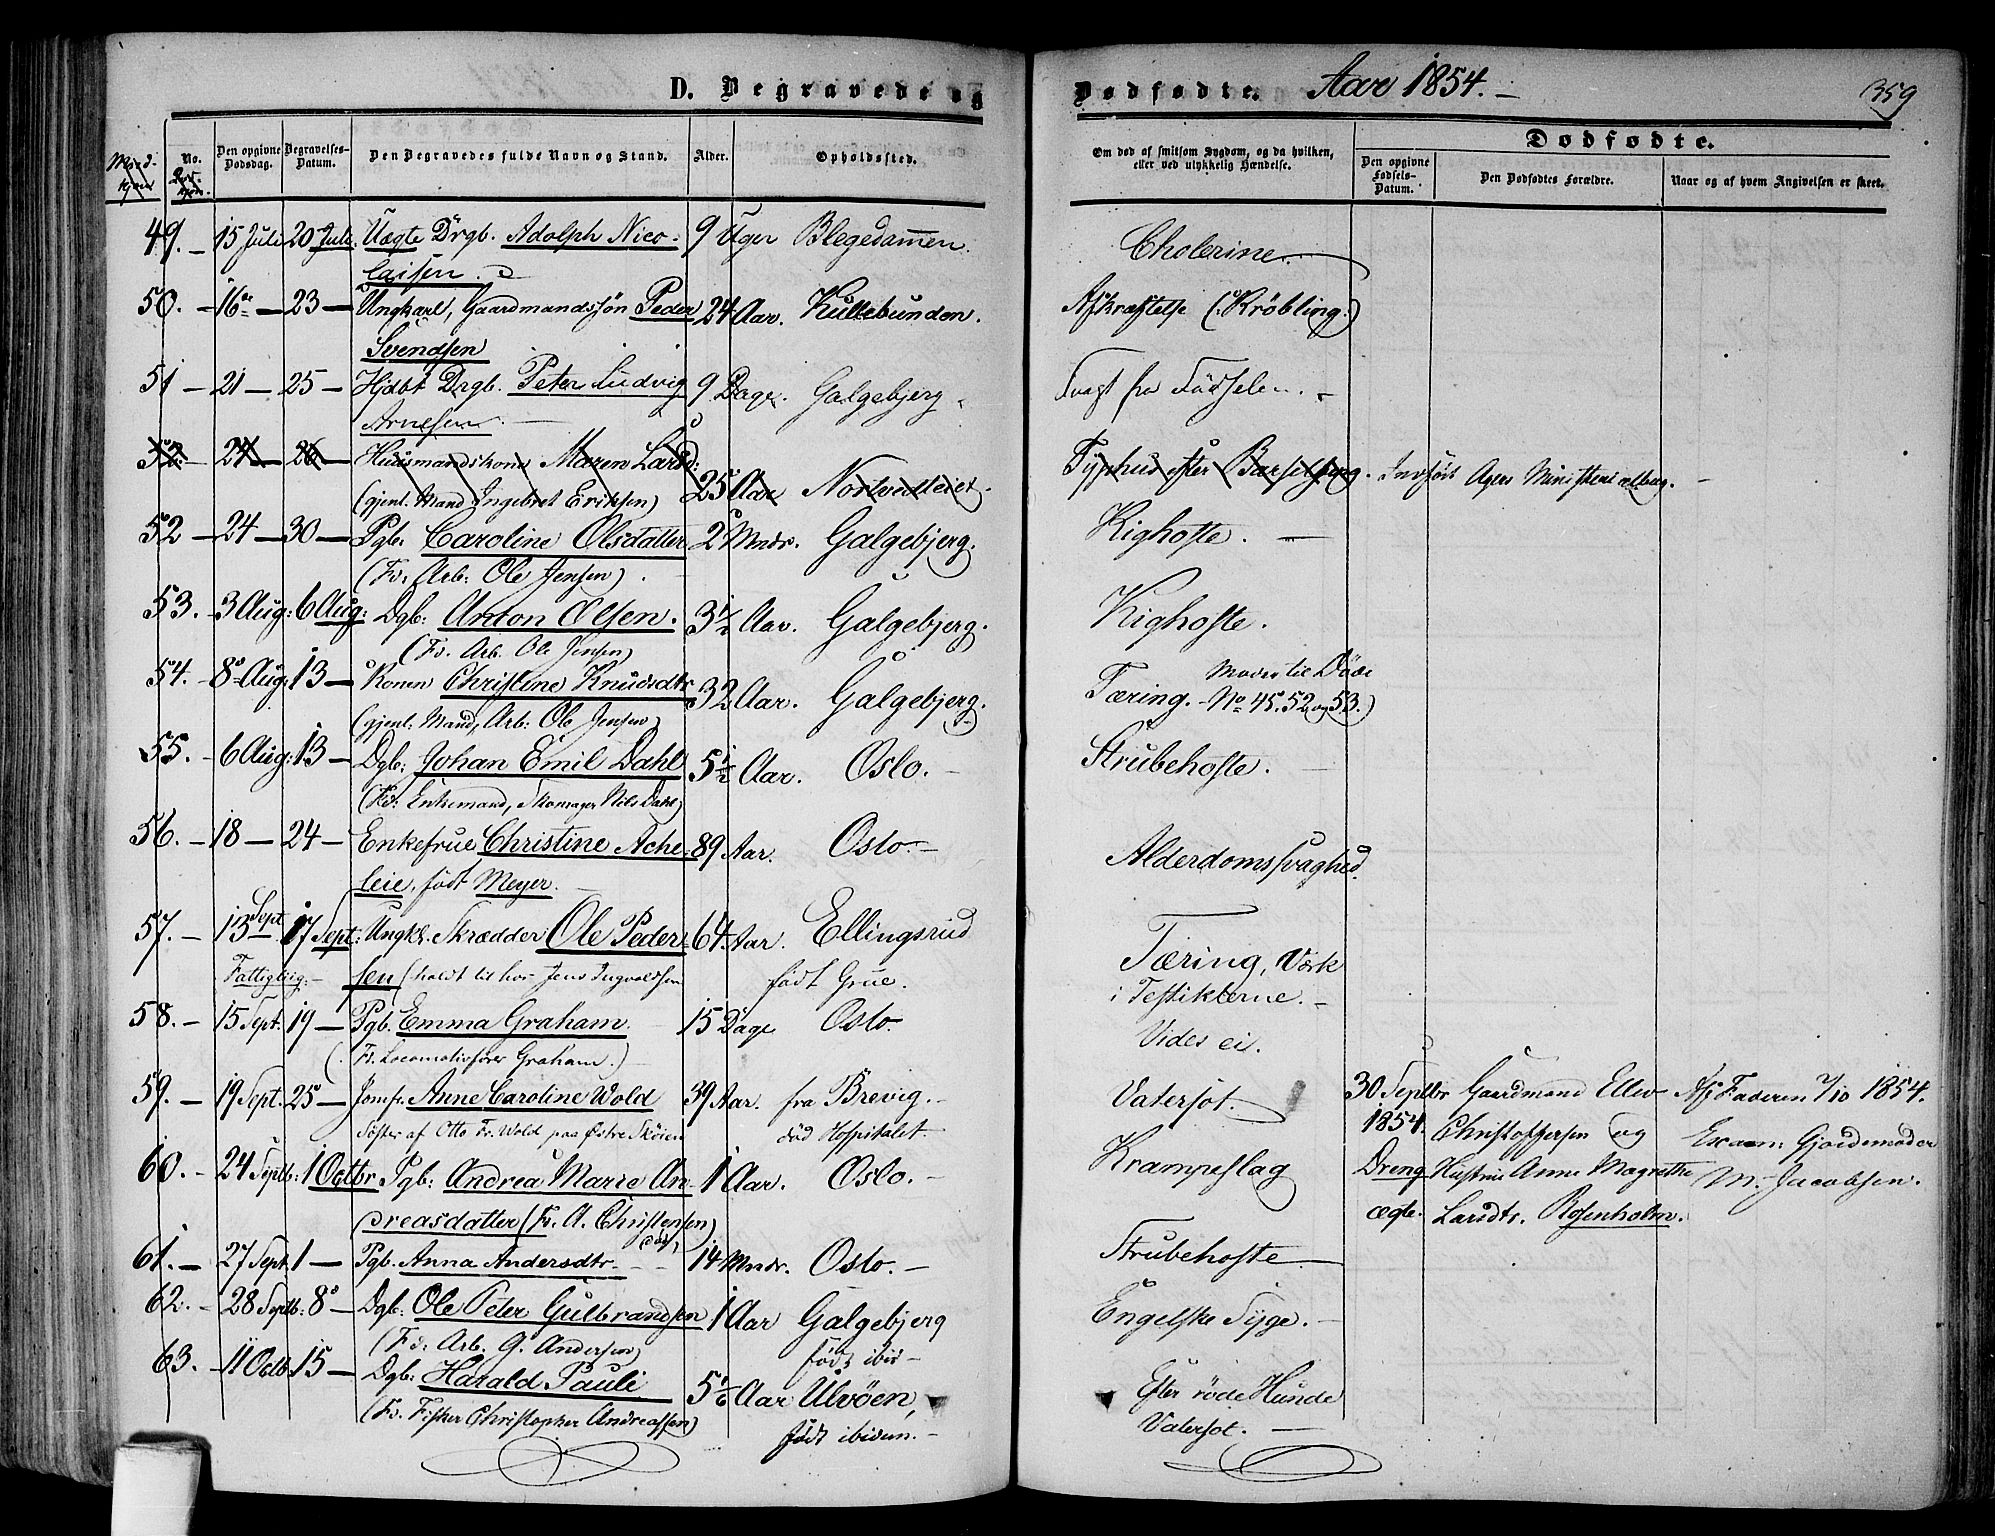 D. Begravede og Dødfødte. Aar 1854. 359
No.
Den opgivne Dødsdag.
Begravelses-Datum.
Den Begravedes fulde Navn og Stand.
Alder.
Opholdssted.
Om død af smitsom Sygdom, og da hvilken, eller ved ulykkelig Hændelse.
Dødfødte.
Den opgivne Fødsels-Datum.
Den Dødfødtes Forældre.
Naar og af hvem Angivelsen er skeet.
49. 15 Juli 20 Juli. Uægte Drgb. Adolph Nico- 9 Uger Blegedammen. Cholerine.
laisen.
50. 16de 23 Ungkarl, Gaardmandssøn Peder 24 Aar. Kullebunden. Afkræftelse (: Krøbling :)
Svendsen
51 21 25 Hjdbt Drgb. Peter Ludvig 9 Dage. Galgebjerg Svagt fra Fødselen.
Arnesen
52. 24 26 Huusmandskone Maren Larsd: 25 Aar Nortvedteiet. Typhus efter Barselseng. Indført Agers Ministerialbog.
(gjenl. Mand Ingebret Eriksen)
52 24 30 Pgb. Caroline Olsdatter 2 Mndr. Galgebjerg. Kighoste.
(Fd: Arb: Ole Jensen).
53. 3 Aug: 6 Aug: Dgb: Anton Olsen. 3½ Aar. Galgebjerg. Kighoste.
(Fd. Arb. Ole Jensen)
54. 8 Aug: 13 Konen Christine Knudsdtr 32 Aar. Galgebjerg. Tæring. Moder til Døde No 45. 52 og 53.)
(gjenl: Mand, Arb: Ole Jensen)
55. 6 Aug: 13 Dgb: Johan Emil Dahl 5½ Aar. Oslo. Strubehoste.
(Fd: Enkemand, Skomager Nils Dahl)
56. 18 24 Enkefrue Christine Ache- 89 Aar. Oslo. Alderdomssvaghed.
leie, født Meyer.
57. 13 Sept. 17 Sept: Ungk. Skrædder Ole Peder- 64 Aar. Ellingsrud Tæring, Værk
Fattiglig. sen (holdt til hos Jens Ingvaldsen født Grue. i Testiklerne.
58. 15 Sept. 19 Pgb. Emma Graham. 15 Dage Oslo. Vides ei.
(Fd. Locomotivfører Graham.)
59. 19 Sept. 25 Jomfr. Anne Caroline Wold 39 Aar. fra Brevig. Vatersot.
Søster af Otto Fr. Wold paa Østre Skøien død Hospitalet.
30 Septbr 1854. Dreng ægte. Gaardmand Ellev Christoffersen og Hustrue Anne Magrethe Larsdtr. Rosenholm. Af Faderen 2/10 1854. Exam: Gjordemoder M. Jacobsen.
60. 24 Septb: 1 Octbr Pgb: Andrea Marie An- 1 Aar. Oslo. Krampeslag
dreasdatter (Fd. A. Christensen)
61. 27 Sept. 1 Pgb. Anna Andersdtr. 14 Mndr. Oslo. Strubehoste
62. 28 Septb: 8 Dgb: Ole Peter Gulbrandsen 1 Aar Galgebjerg Engelske Syge.
(Fd: Arb. G. Andersen) født ibid
63. 11 Octb: 15 Dgb: Harald Pauli 5 Aar Ulvöen, Efter røde Hunde
(Fd. Fisker Christopher Andreassen) født ibidem. Vatersot.